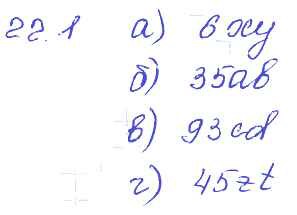 22.1 а) 6xy
б) 35ab
в) 93cd
г) 45zt